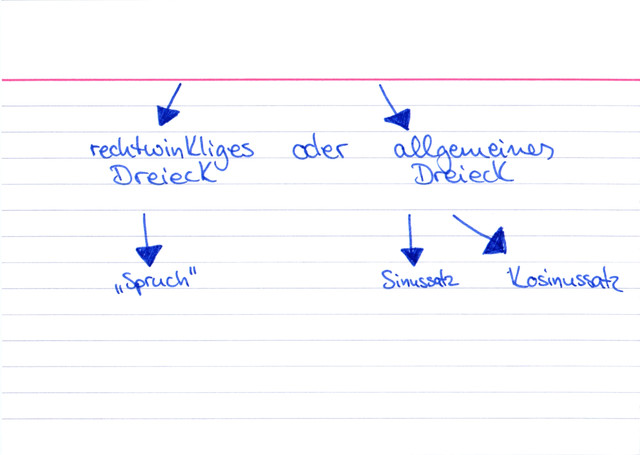 rechtwinkliges oder allgemeines
Dreieck Dreieck
„Spruch“ Sinussatz Kosinussatz